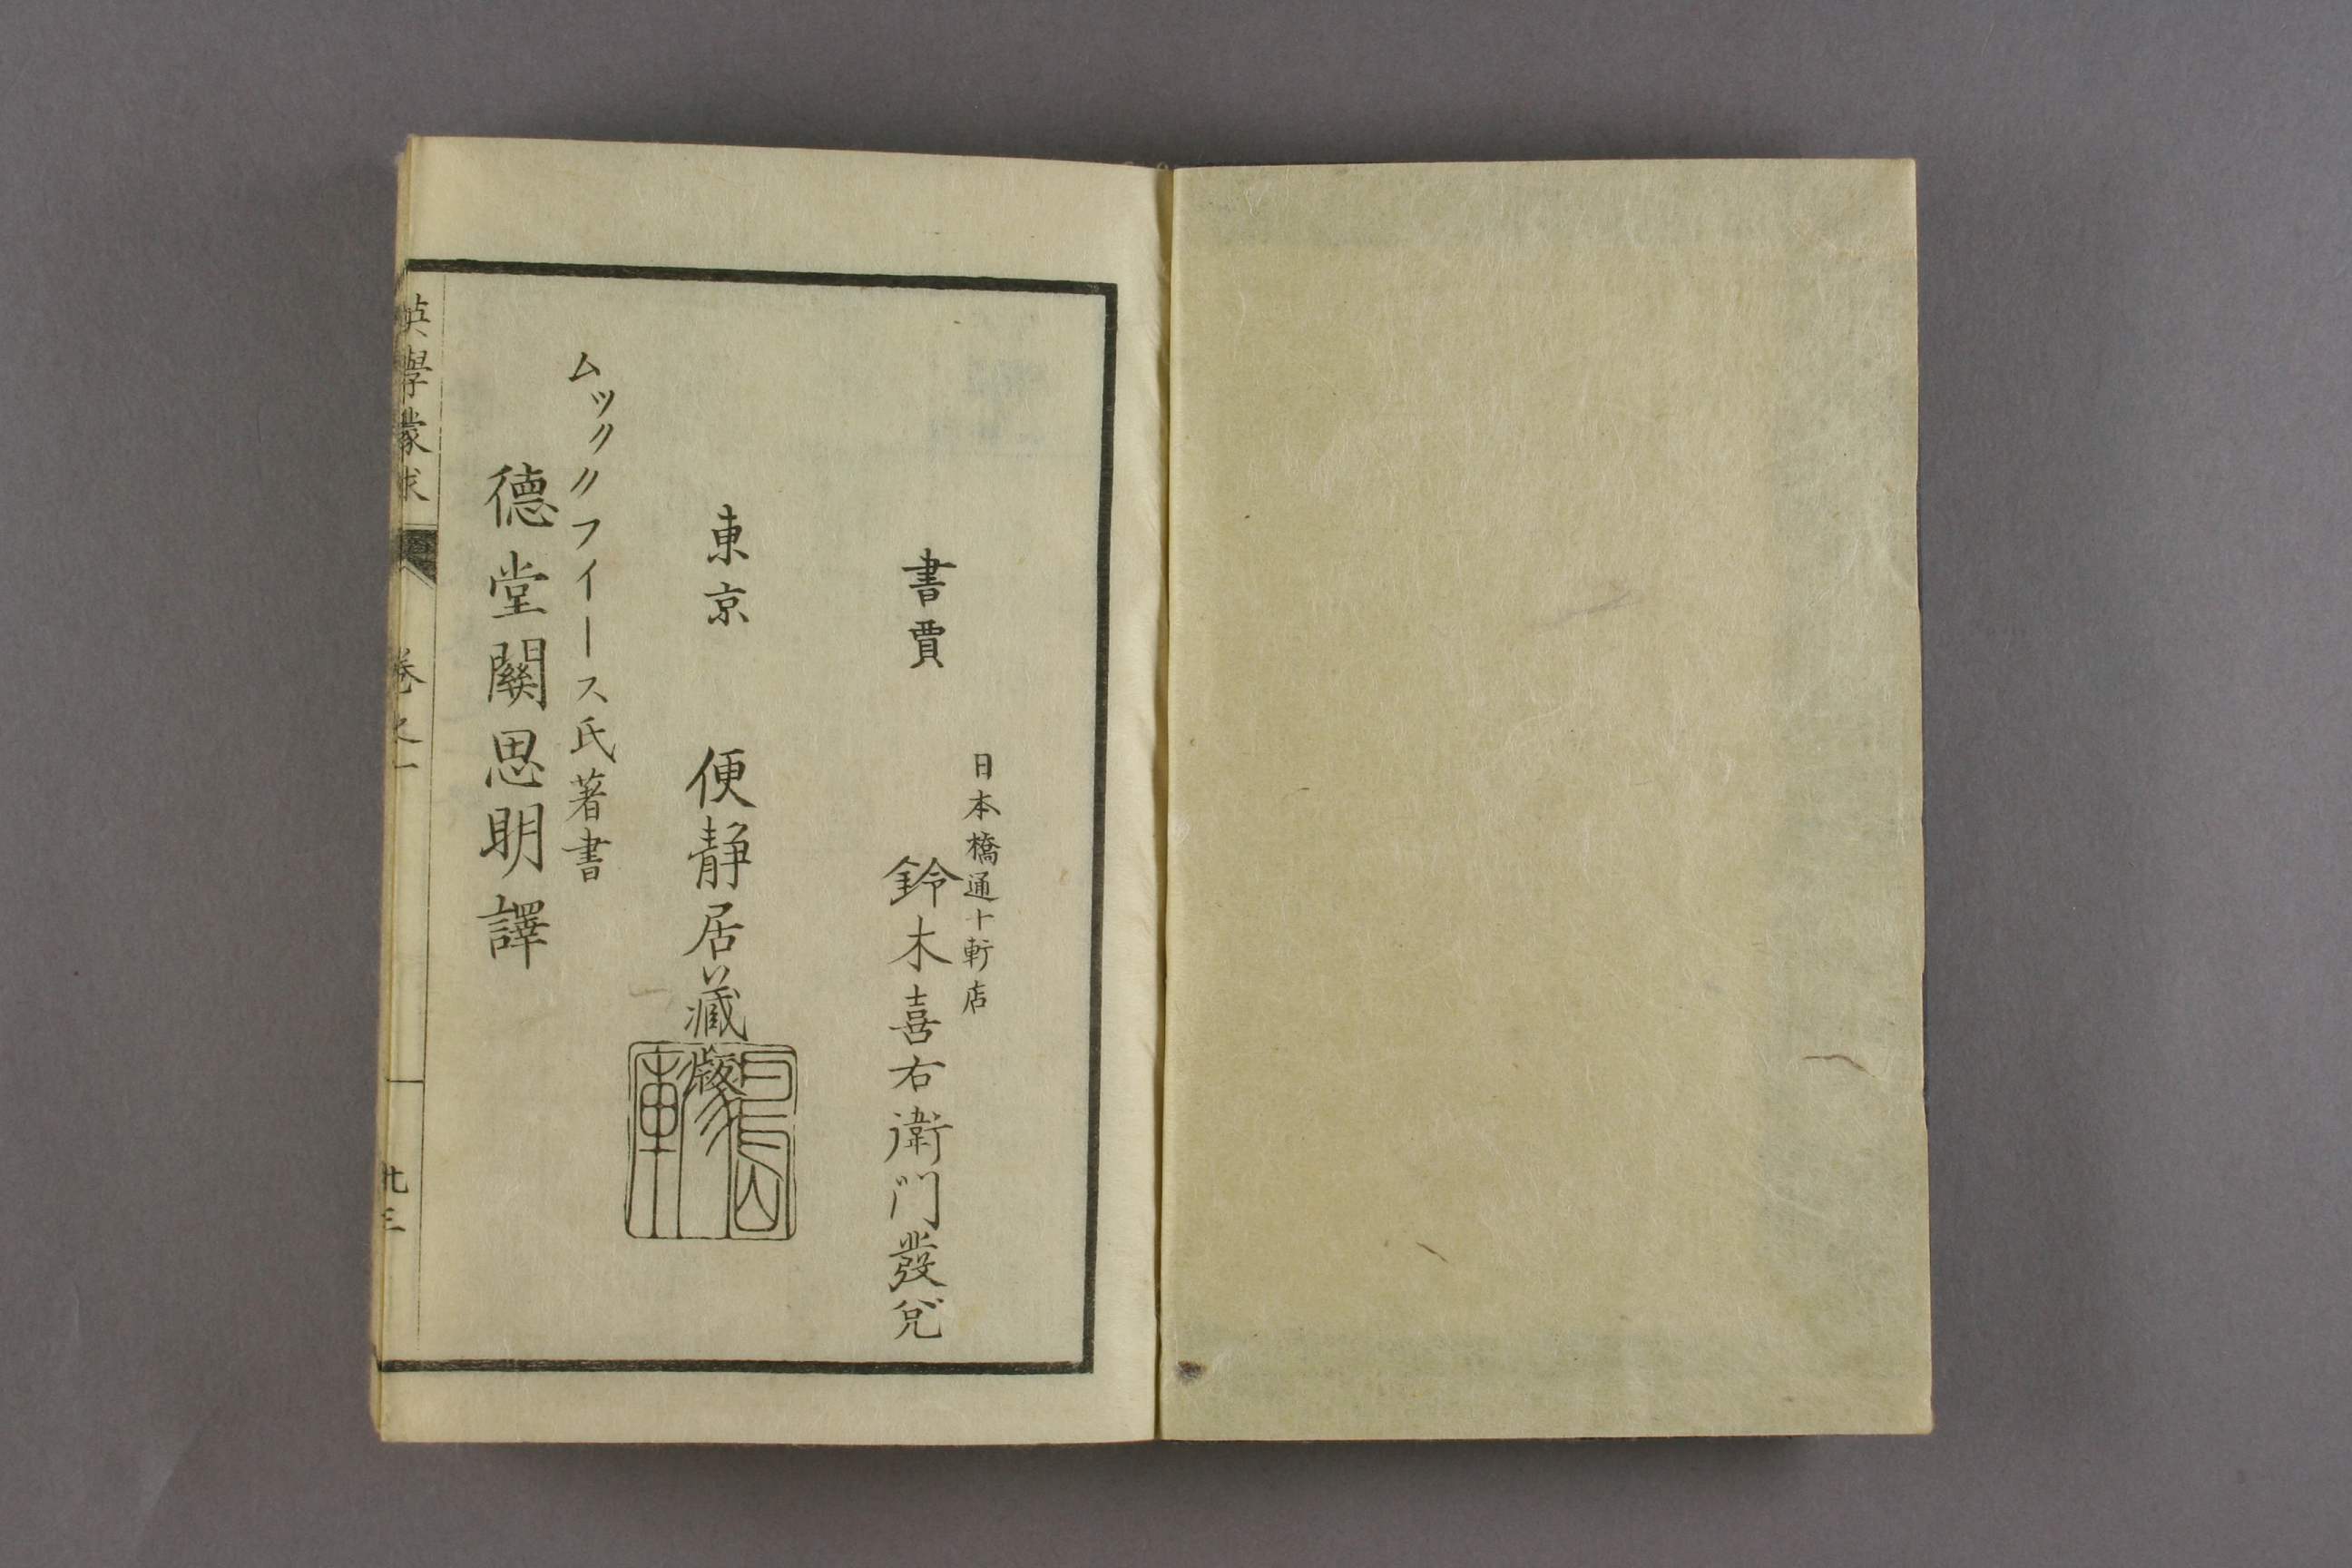 書賈
日本橋通十軒店
鈴木喜右衛門發兌
東京 便静居藏版
ムック〃フイース氏著書
德堂關思明譯
英學蒙求 卷之一 廿三